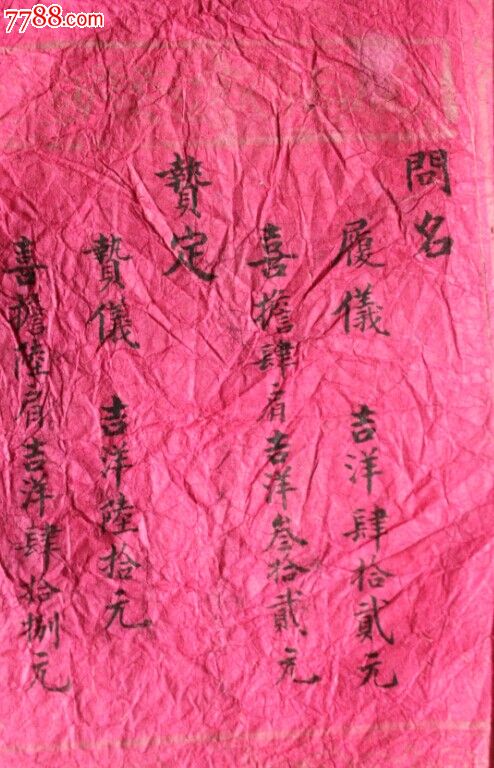 7788.com
問名
履儀 吉洋肆拾貳元
喜擔肆肩吉洋叁拾貳元
贄定
贄儀 吉洋陸拾元
喜擔陸肩吉洋肆拾捌元